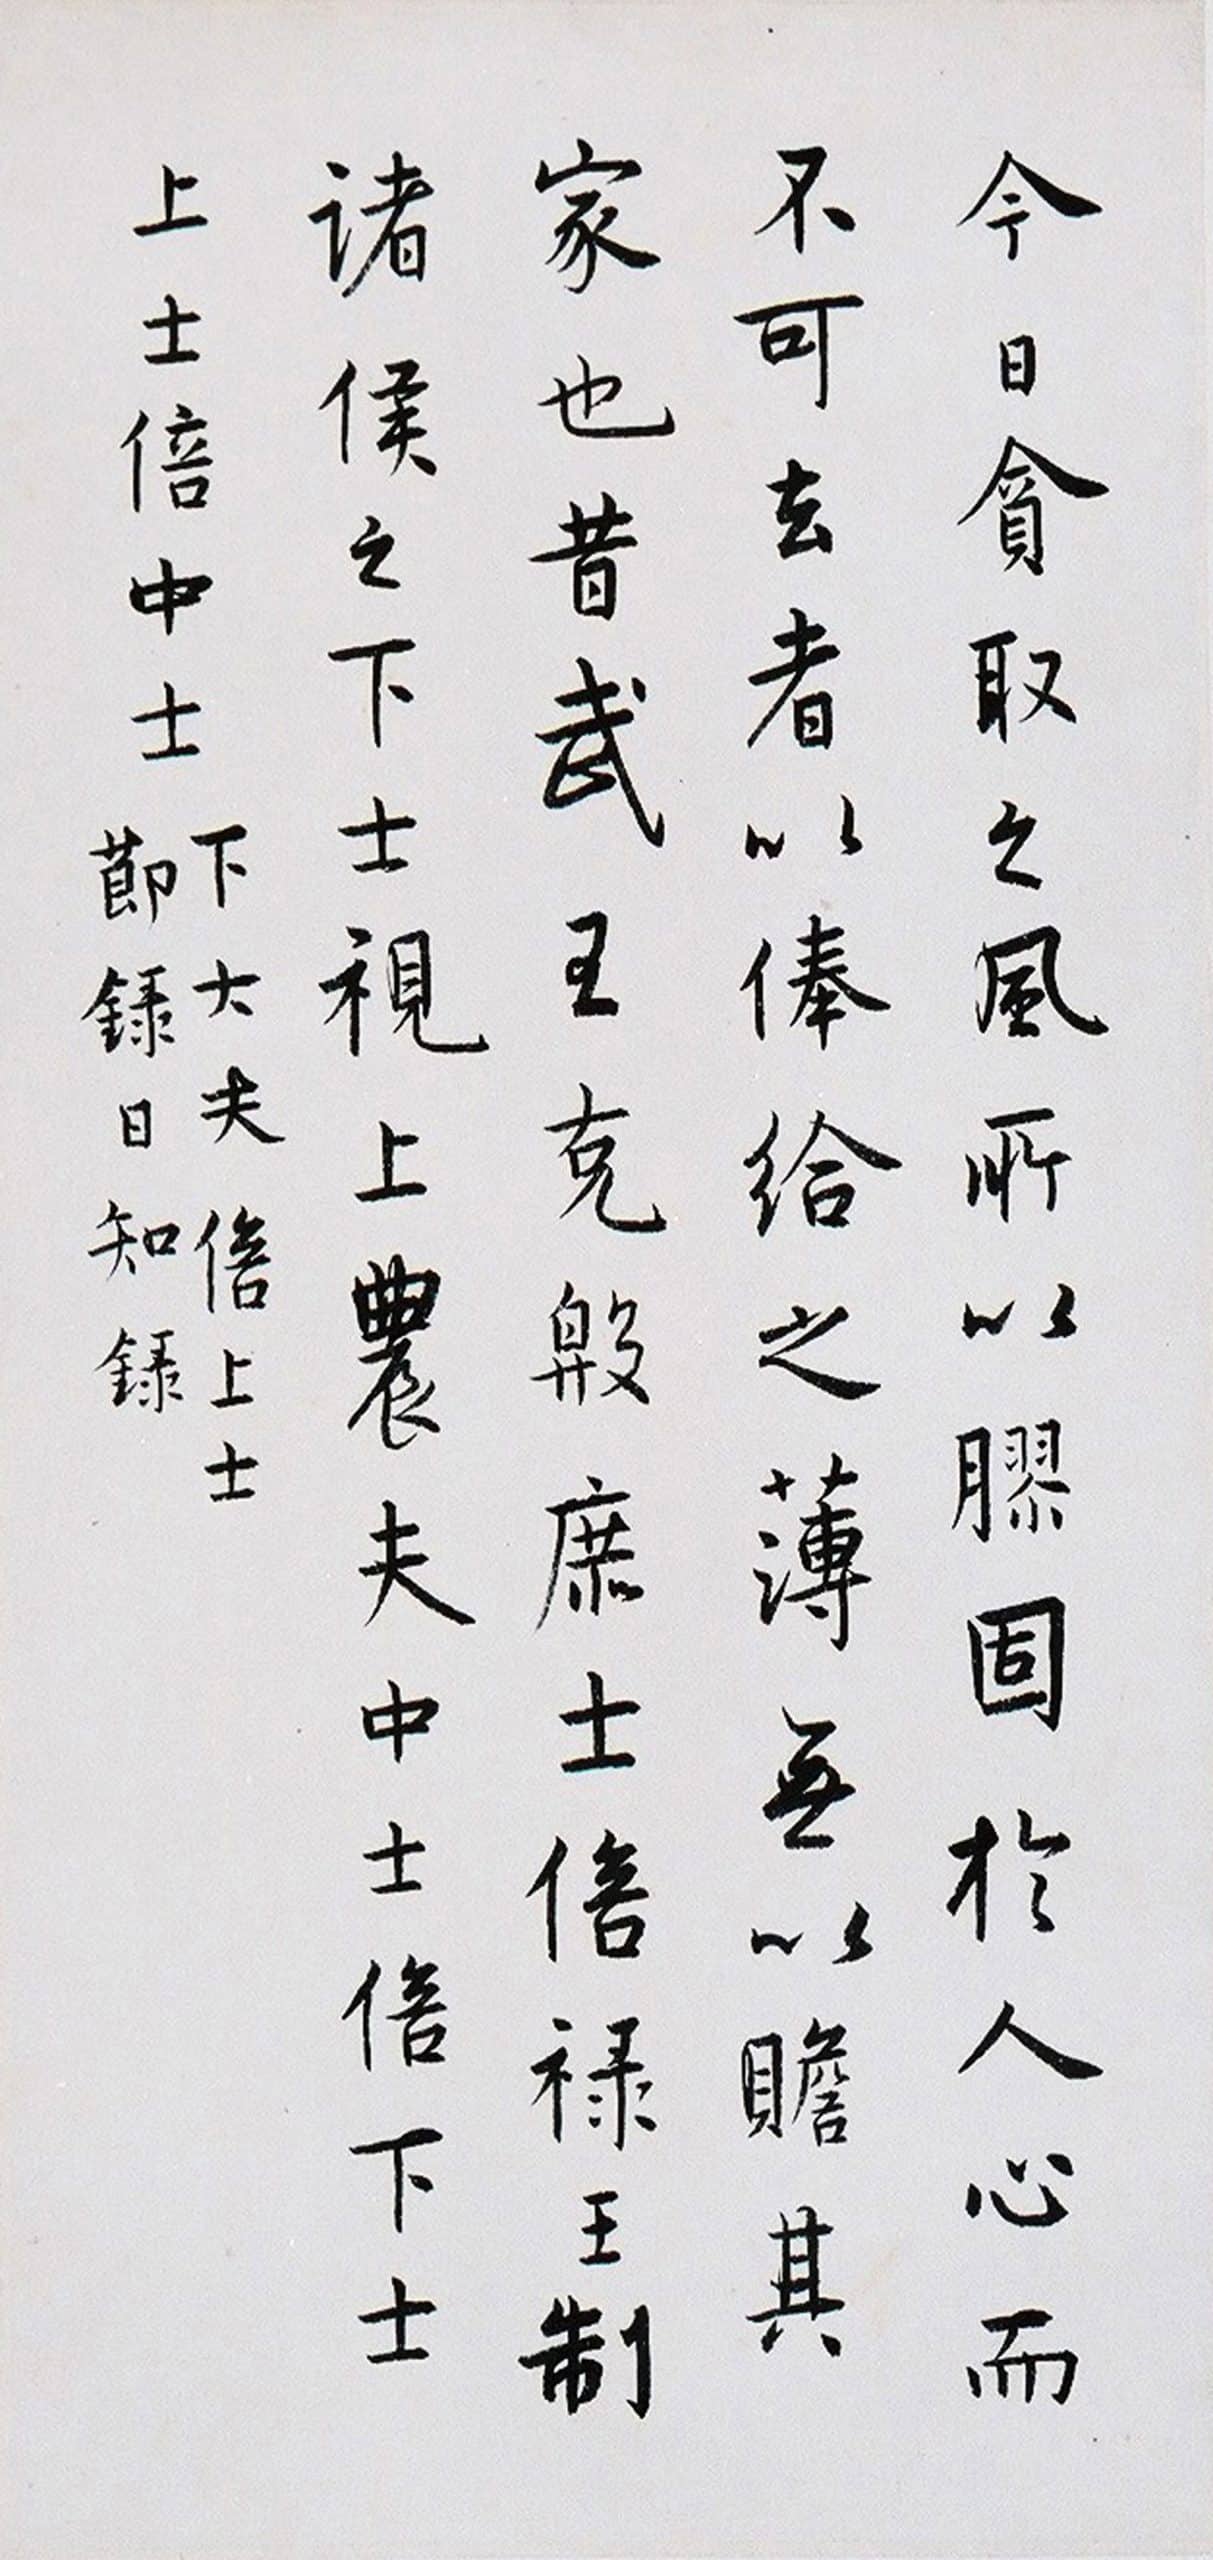 今日貪取之風所以膠固於人心而
不可去者以俸給之薄無以贍其
家也昔武王克殷庶士倍祿王制
諸侯之下士視上農夫中士倍下士
上士倍中士
下大夫倍上士
節錄日知錄